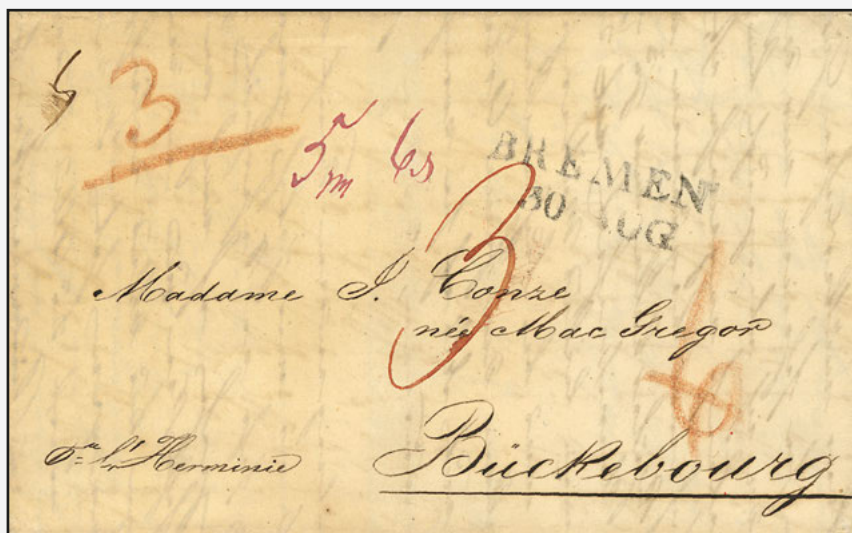 3
6
BREMEN
30 AUG
3
Madame J. Conze
née Mac Gregor
l'Herminie
Bückebourg